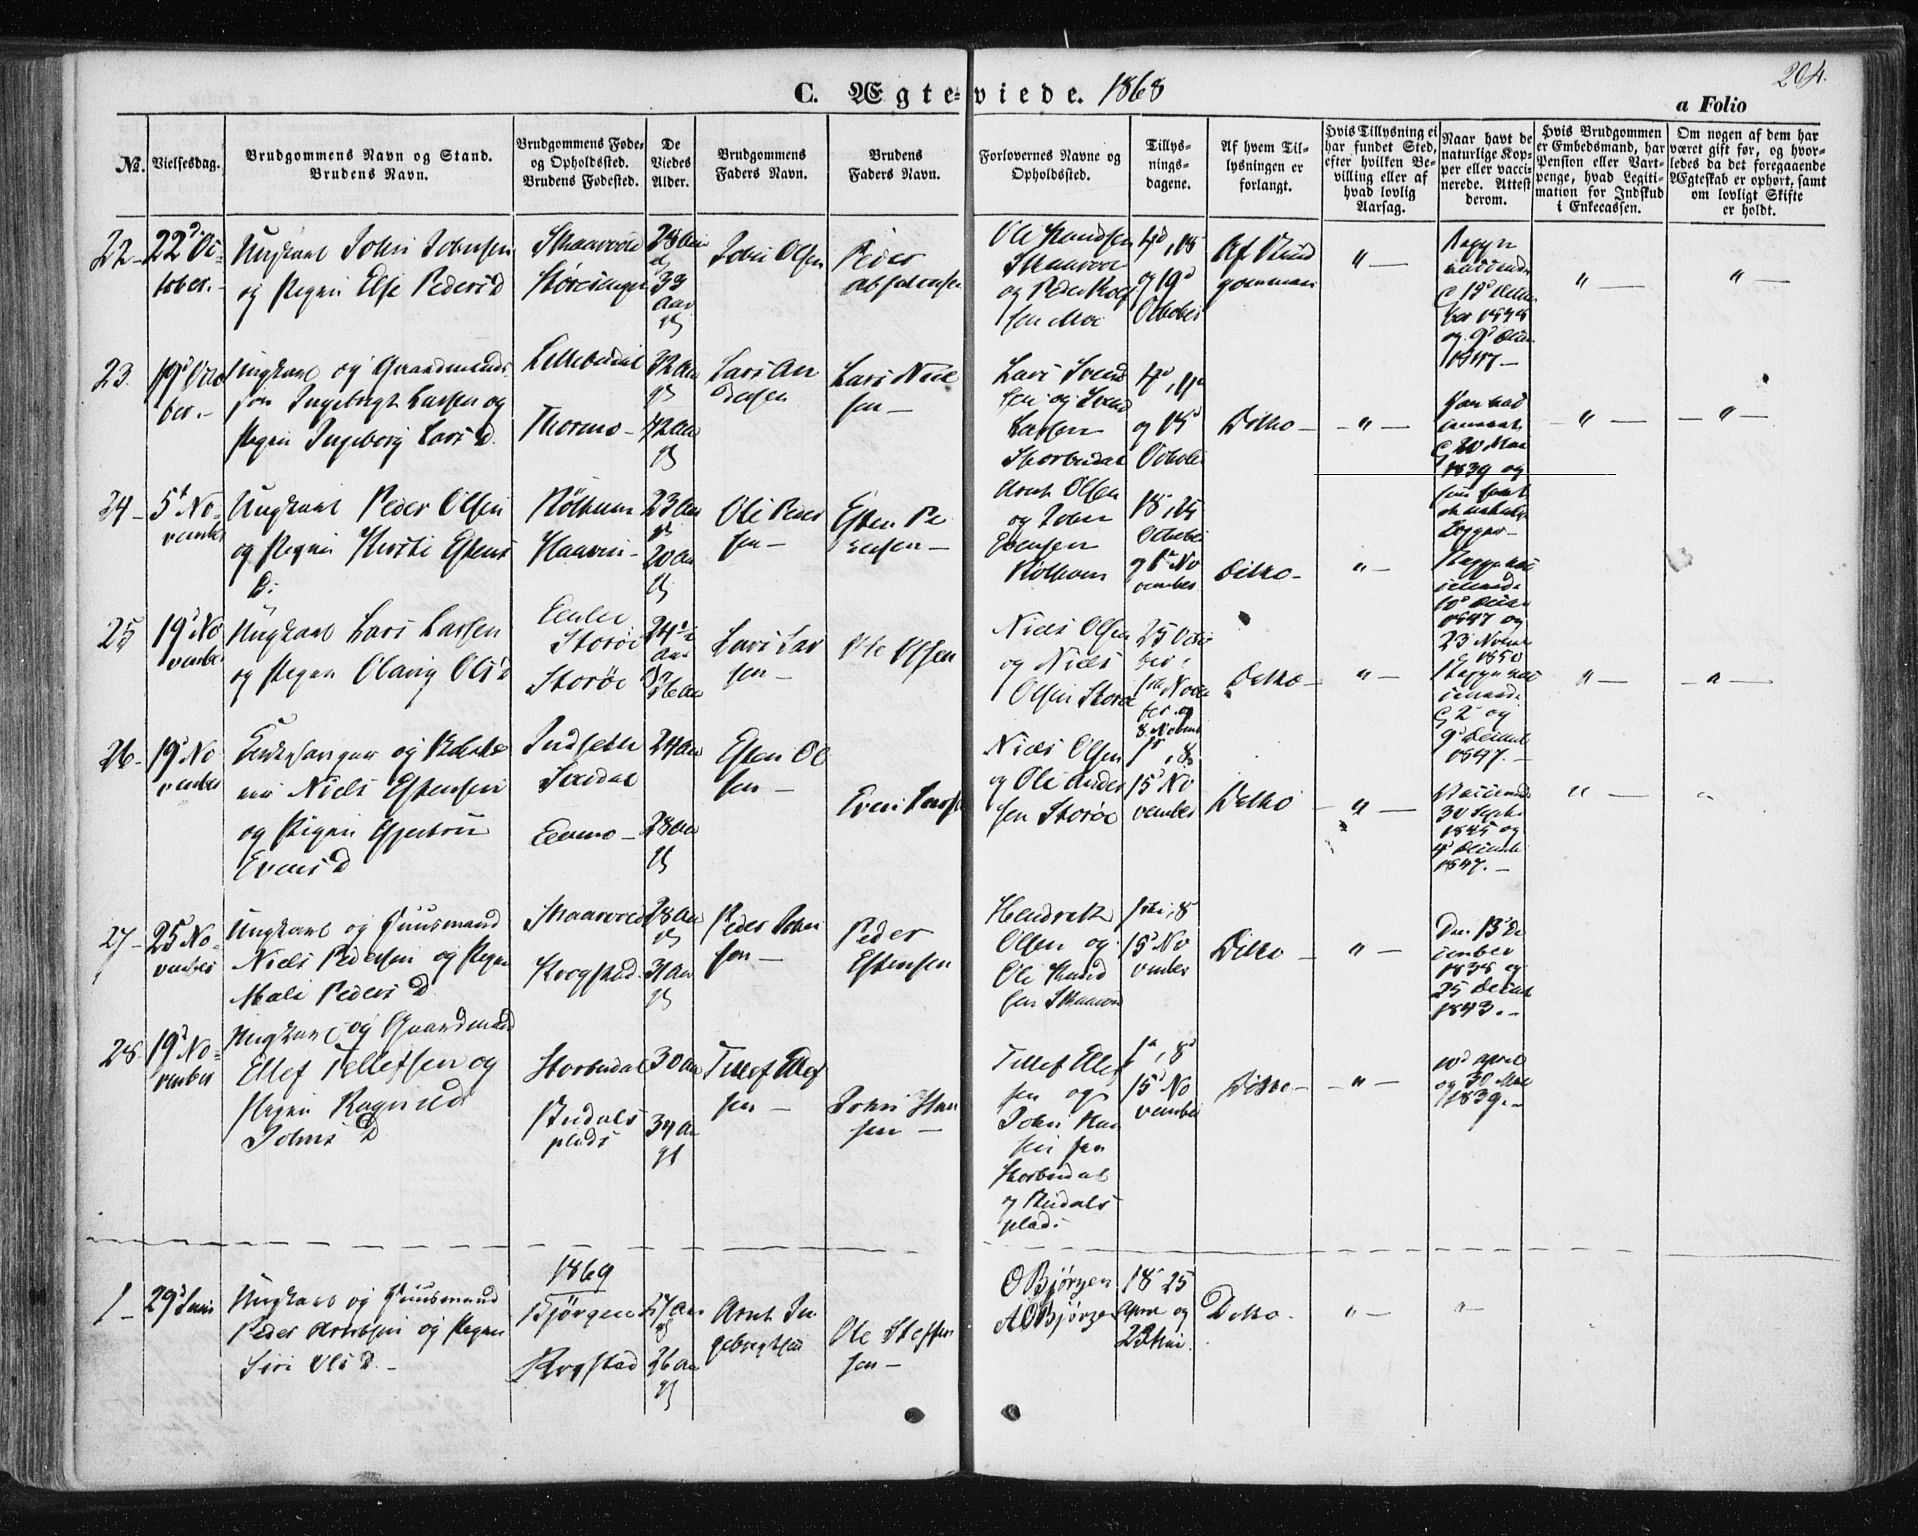 204.
C. Ægteviede. 1868
a Folio
No.
Vielsesdag.
Brudgommens Navn og Stand.
Brudens Navn.
Brudgommens Føde-
og Opholdssted.
Brudens Fødested.
De
Viedes
Alder.
Brudgommens
Faders Navn.
Brudens
Faders Navn.
Forlovernes Navne og
Opholdssted.
Tillys-
nings-
dagene.
Af hvem Til-
lysningen er
forlangt.
Hvis Tillysning ei
har fundet Sted,
efter hvilken Be-
villing eller af
hvad lovlig
Aarsag.
Naar havt de
naturlige Kop-
per eller vacci-
nerede. Attest
derom.
Hvis Brudgommen
er Embedsmand, har
Pension eller Vart-
penge, hvad Legiti-
mation for Indskud
i Enkecassen.
Om nogen af dem har
været gift før, og hvor-
ledes da det foregaaende
Ægteskab er ophørt, samt
om lovligt Skifte
er holdt.
22-
22d Oc-
tober.-
Ungkarl John Johnsen
og Pigen Else Pedersd
Skaarvold
Størensenget
28 Aar
33
Aar
John Olsen
Peder
Absalonsen
Ole Knudsen
Skaarvol
og Peder Rolf
sen Moe
4d, 18
og 19d
October
Af Brud
gommen
" -
" -
" -
23.
Ungkarl og Gaardmands
søn Ingebrigt Larsen og
Pigen Ingeborg Larsd.
Lillebudal
Thormo -
32 Aar
42 Aar
Lars An
dersen
Lars Niel
sen -
Lars Svend
sen og Svend
Larsen
Storbudal
October
Ditto -
- " -
- " -
- " -
1839 og
24 -
5t No-
vember
Ungkarl Peder Olsen
og Pigen Kirsti Estens
D:
Rølhum
Haaven -
23 Aar
20 Aar
Ole Peder
sen -
Esten Pe
dersen -
Arnt Olsen
og John
Evensen
Rølhum
18, 25
October
og 1st No
vember
Ditto -
" -
25
19d No
vember
Ungkarl Lars Larsen
og Pigen Olavig Olsd
Storøe
Storøe
24
Aar
26 Aar
Lars Lar
sen -
Ole Olsen
Niels Olsen
og Niels
Olsen Storøe
25 Octo
ber
1ste Novem
ber og
8 Novemb
Ditto -
" -
" -
- " -
1847 og
23 Novem
1850
26 -
19d No
vember
Kirkesanger og Skolelæ
rer Niels Estensen
og Pigen Gjertrue
Evensd
Indseth
Eenmo -
24 Aar
28 Aar
Esten Ol
sen -
Even Larsen
Niels Olsen
og Ole Ander
sen Storøe
1st, 8
15d No
vember
Ditto
- " -
" -
"
1847. -
30 Septbr
1845 og
1847. -
27 -
25 No-
vember
Ungkarl og Huusmand
Niels Pedersen og Pigen
Mali Pedersd
Skaarvold
Krogstad
28 Aar
31 Aar
Peder John
sen -
Peder
Estensen
Hendrik
Olsen og
Ole Knud
sen Skaarvold
1ste, 8
15d No
vember
Ditto -
" -
Den 13d De
cember
1838 og
25 Decbr
1843. -
28
19d No-
vember
Ungkarl og Gaardmand
Ellef Tellefsen og
Pigen Ragnild
Johnsd
Storbudal
Budals
plads
30 Aar
34 Aar
Tellef Ellef
sen -
John Han
sen -
Tellef Ellef
sen og
John Han
sen fra
Storbudal
og Budals
plads
1st, 8d
15d No
vember
Ditto -
- " -
10d April
og 30 Mai
1839. -
1869
1 -
29d Juni
Ungkarl og Huusmand
Peder Arntsen og Pigen
Siri Olsd. -
Bjørgen
Krogstad
27 Aar
26 Aar
Arnt In
gebrigtsen
Ole Steffen
sen -
O Bjørgen
A O Bjørgen
18 25
April og
2d Mai.
Ditto -
" -
" -